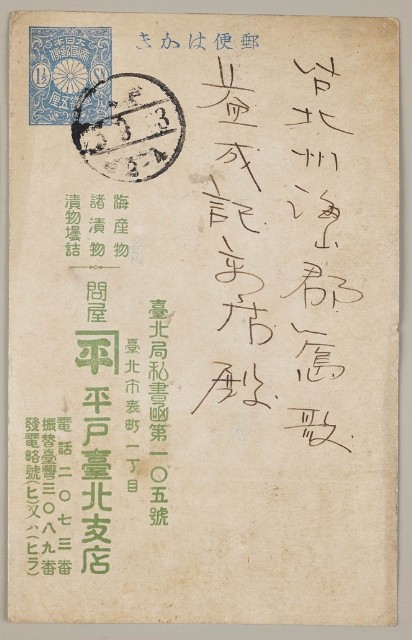 郵便はかき
大日本
帝國郵便
壹錢五厘
1½ Sn
台北州海山郡鶯歌
益成記商店殿
海産物
諸漬物
漬物壜詰
問屋
平
平戸臺北支店
臺北局私書凾第一〇五號
臺北市表町一丁目
電話二〇七三番
振替臺灣三〇八九番
發電略號(ヒ)又ハ(ヒラ)